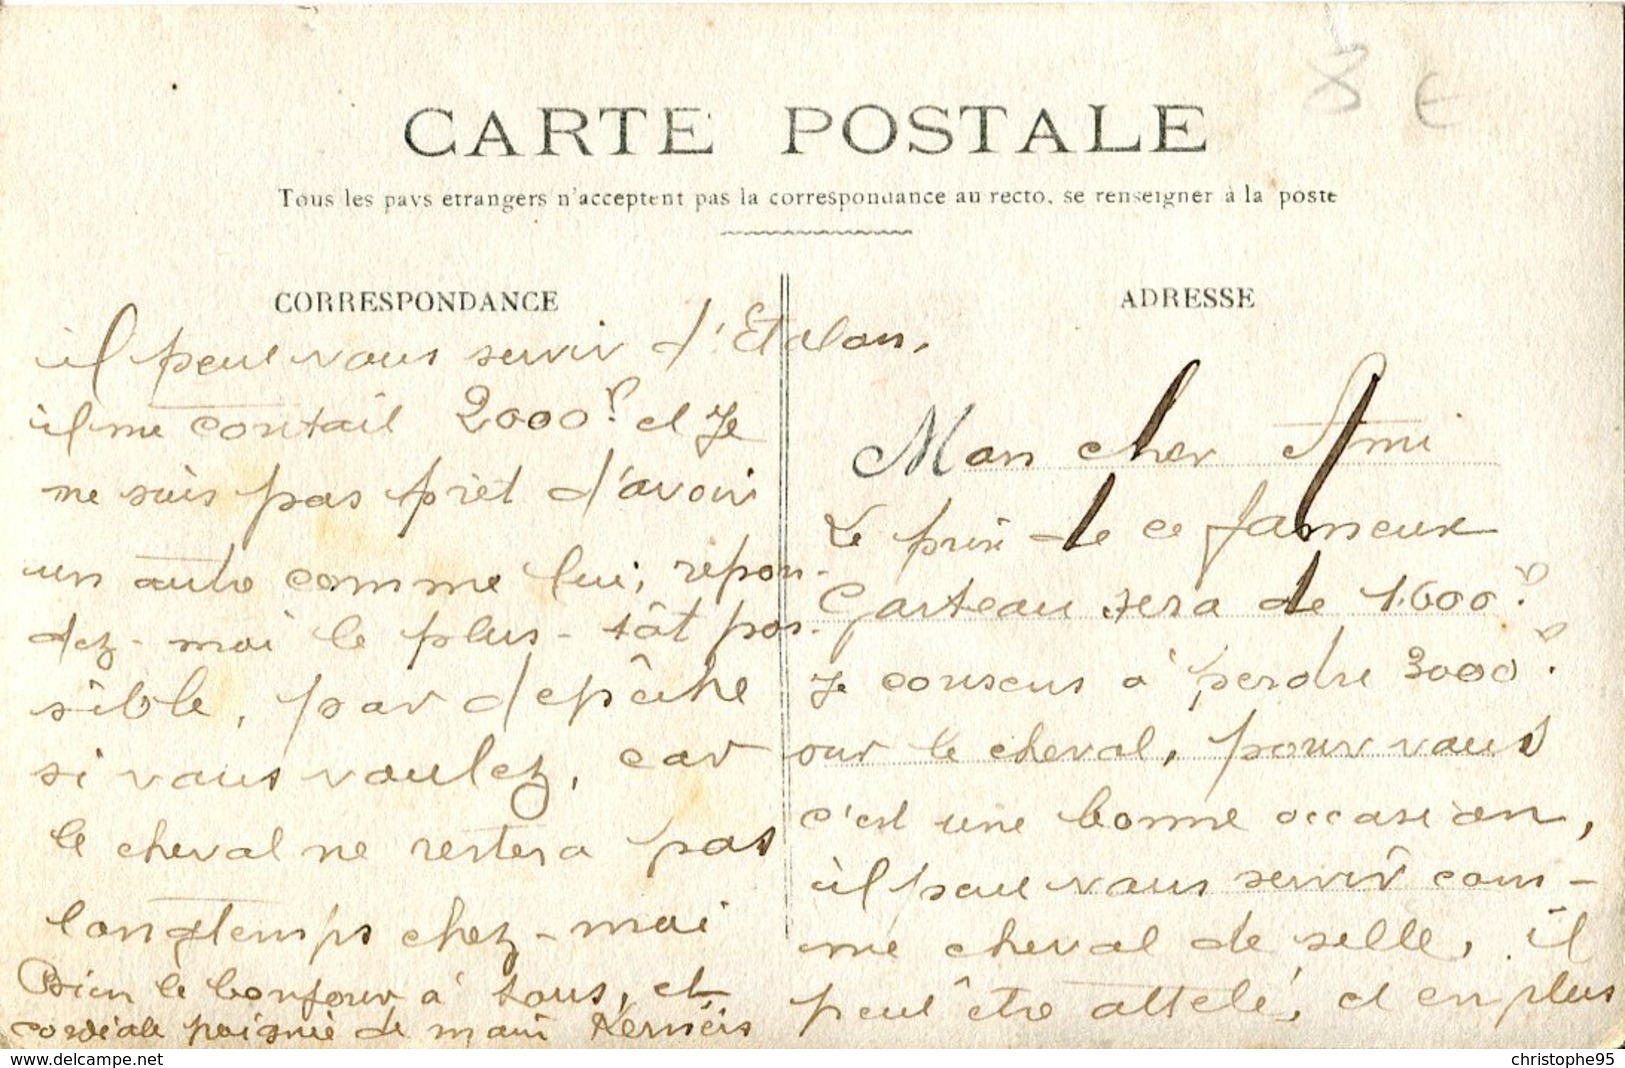 8 €
CARTE POSTALE
Tous les pays étrangers n'acceptent pas la correspondance au recto, se renseigner à la poste
CORRESPONDANCE
ADRESSE
Mon cher Ami
Le prix de ce fameux
Garteau sera de 1.600f.
Je consens à perdre 3000f.
sur le cheval, pour vous
c'est une bonne occasion,
il peut vous servir com-
me cheval de selle, il
peut être attelé, et en plus
il peut vous servir d'Etalon.
il me contait 2000f. et Je
ne suis pas prêt d'avoir
un auto comme lui, répon-
dez-moi le plus-tôt pos-
sible, par dépêche
si vous voulez, car
le cheval ne restera pas
longtemps chez-moi
Bien le bonjour à tous, et
cordiale poignée de main Kernéis
www.delcampe.net
christophe95